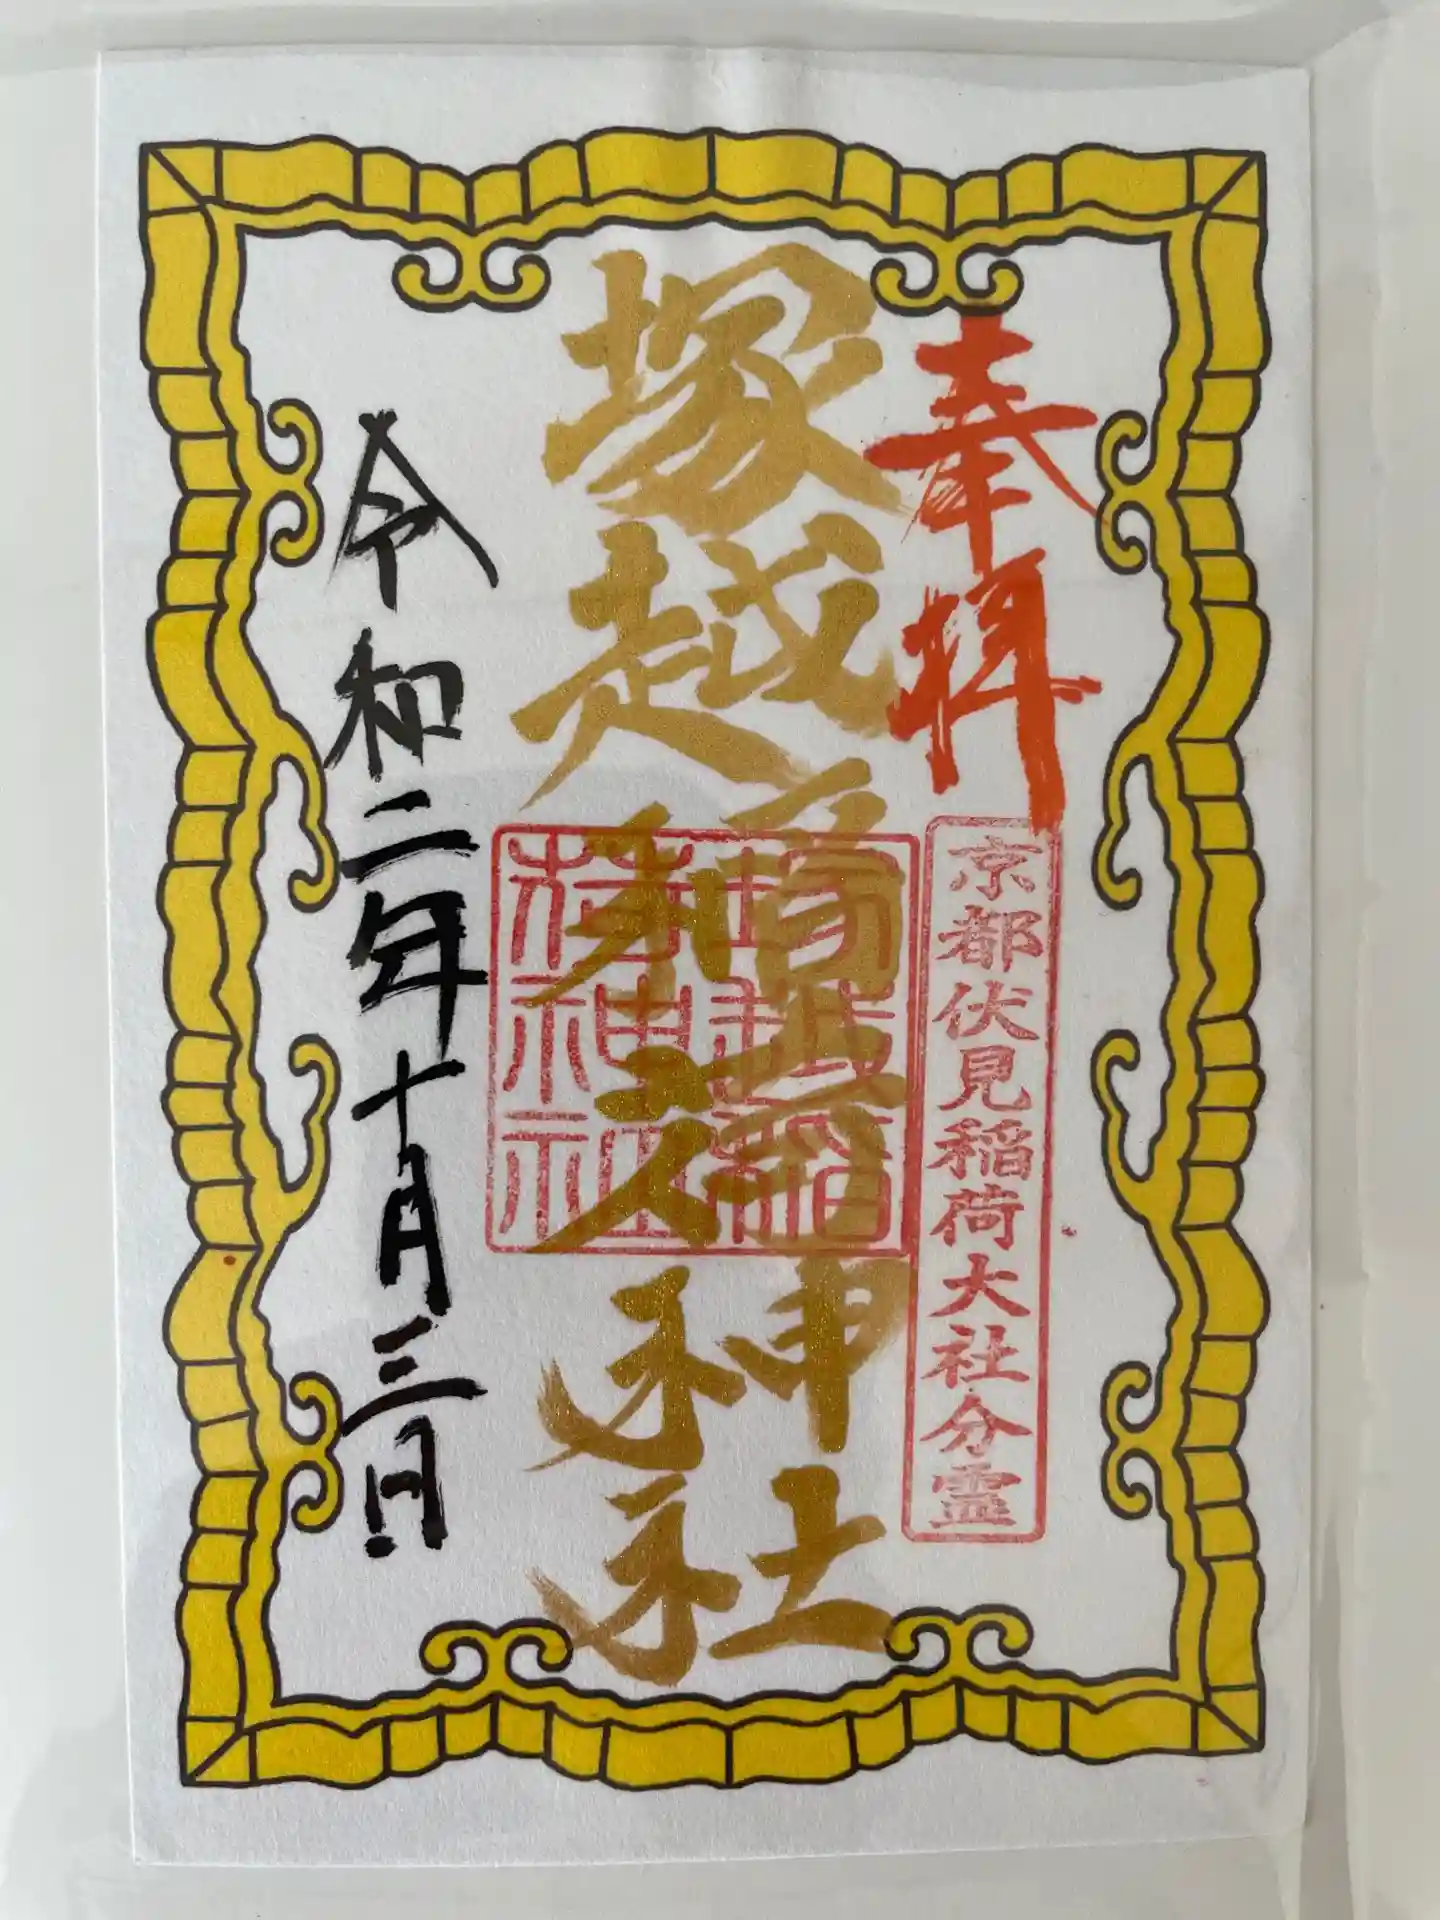 奉拝
京都伏見稲荷大社分霊
塚越稲荷神社
塚越稲
荷神社
令和二年十月三日